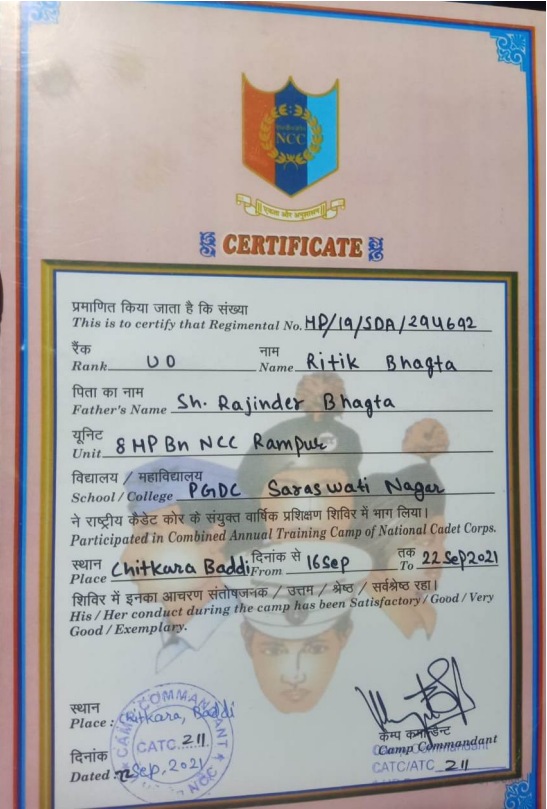 NCC
एकता और अनुशासन
CERTIFICATE
प्रमाणित किया जाता है कि संख्या
This is to certify that Regimental No. HP/19/SDA/294692
रैंक नाम
Rank UO Name Ritik Bhagta
पिता का नाम
Father's Name Sh. Rajinder Bhagta
यूनिट
Unit 8 HP Bn NCC Rampur
विद्यालय / महाविद्यालय
School / College PGDC Saraswati Nagar
ने राष्ट्रीय कैडेट कोर के संयुक्त वार्षिक प्रशिक्षण शिविर में भाग लिया।
Participated in Combined Annual Training Camp of National Cadet Corps.
स्थान दिनांक से तक
Place Chitkara Baddi From 16 Sep To 22 Sep 2021
शिविर में इनका आचरण संतोषजनक / उत्तम / श्रेष्ठ / सर्वश्रेष्ठ रहा।
His / Her conduct during the camp has been Satisfactory / Good / Very
Good / Exemplary.
स्थान
Place: Chitkara, Baddi
CAMP COMMANDANT
CATC 211
NCC
दिनांक
Dated 22 Sep, 2021
कैम्प कमांडेन्ट
Camp Commandant
CATC/ATC 211